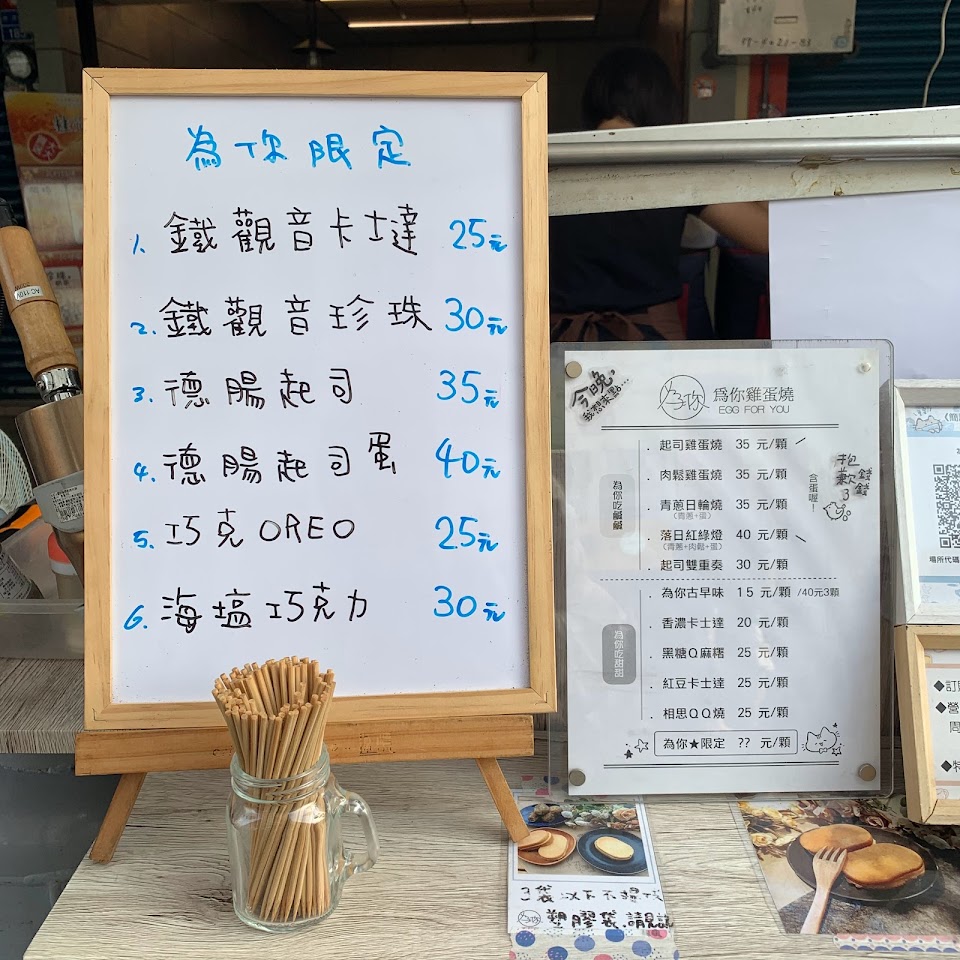 為你限定
1. 鐵觀音卡士達 25元
2. 鐵觀音珍珠 30元
3. 德腸起司 35元
4. 德腸起司蛋 40元
5. 巧克OREO 25元
6. 海塩巧克力 30元
AC 110V
今晚,
我想來點...
為你
為你雞蛋燒
EGG FOR YOU
為你吃鹹鹹
. 起司雞蛋燒 35 元/顆
. 肉鬆雞蛋燒 35 元/顆
. 青蔥日輪燒 35 元/顆
(青蔥+蛋)
. 落日紅綠燈 40 元/顆
(青蔥+肉鬆+蛋)
. 起司雙重奏 30 元/顆
含蛋喔!
抱歉了
錢錢
為你吃甜甜
. 為你古早味 15 元/顆 /40元3顆
. 香濃卡士達 20 元/顆
. 黑糖Q麻糬 25 元/顆
. 紅豆卡士達 25 元/顆
. 相思QQ燒 25 元/顆
為你★限定 ?? 元/顆
場所代碼
◆訂
◆營
周
◆特
3袋以下不提供
為你 塑膠袋.請見諒